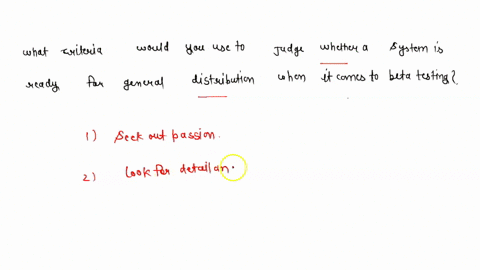 what criteria would you use to judge whether a system is
ready for general distribution when it comes to beta testing?
1) Seek out passion.
2) Look for detail an.